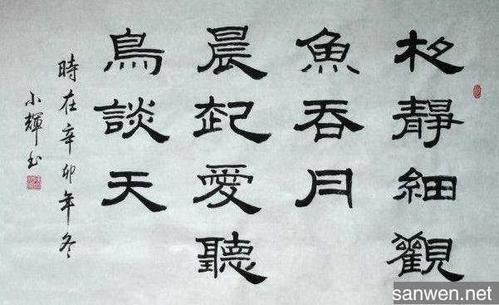 夜靜細觀
魚吞月
晨起愛聽
鳥談天
時在辛卯年冬
小輝
sanwen.net